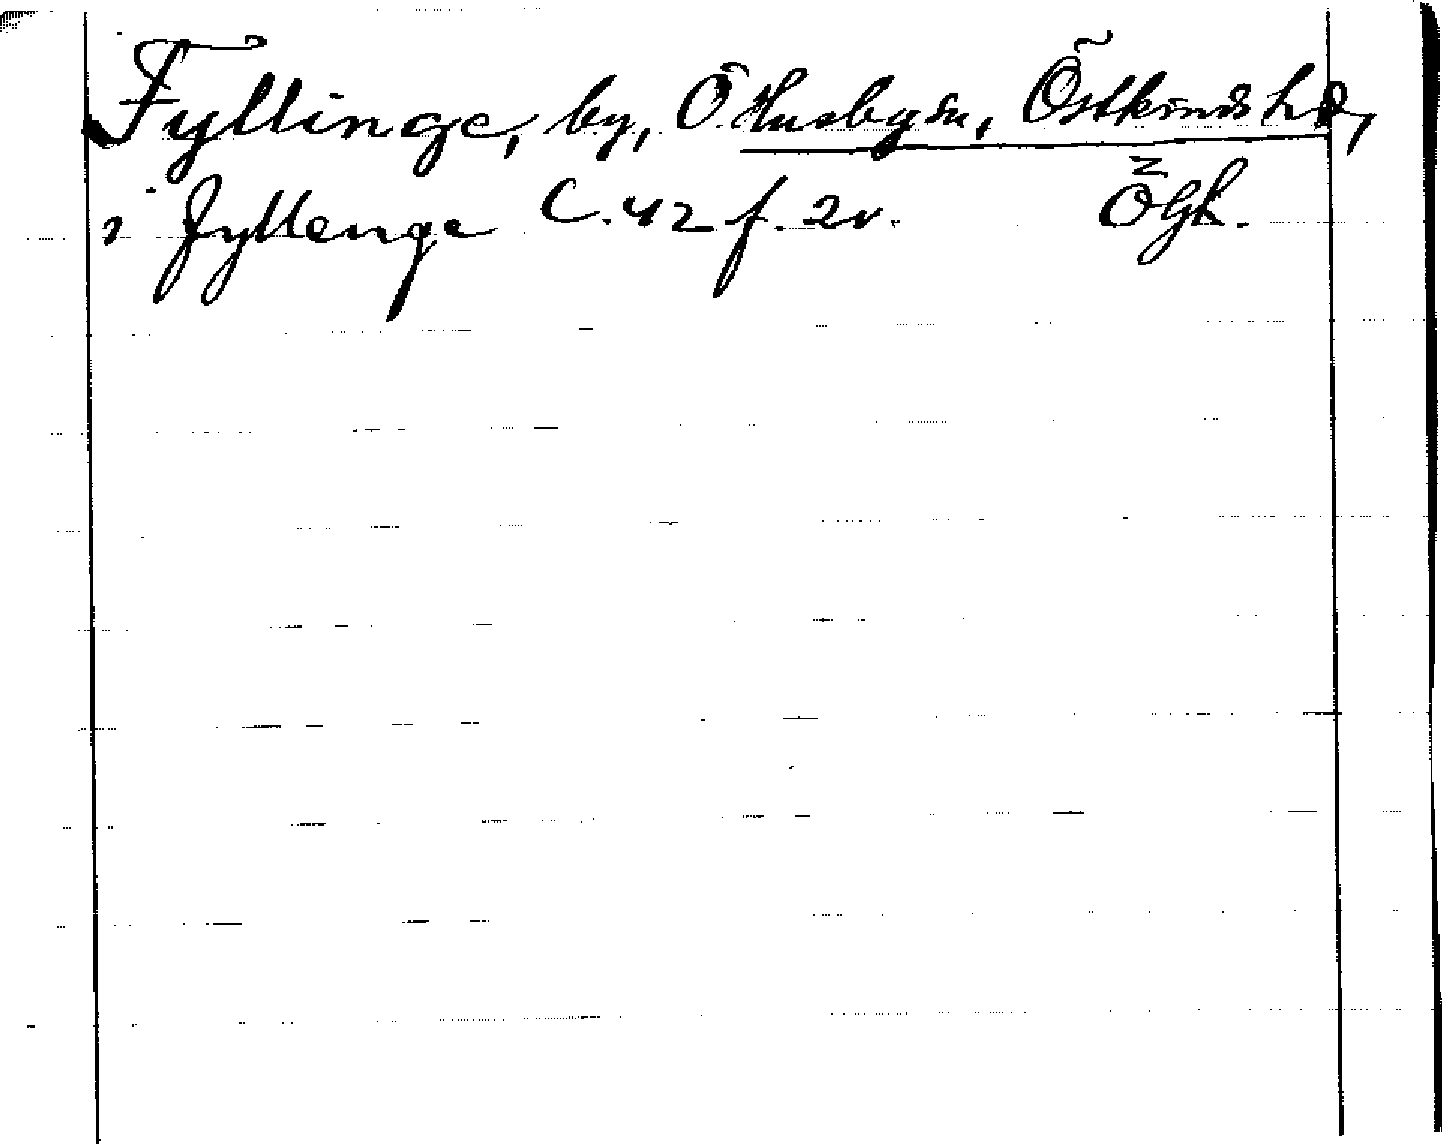 Fyllinge, by, Ö Husby sn, Östkinds hd,
i fyllenge C. 42 f. 2v. Ögl.